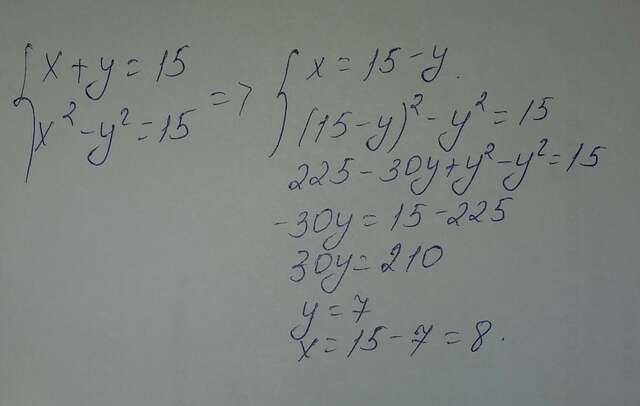 {x + y = 15
x² - y² = 15 => {x = 15 - y.
(15 - y)² - y² = 15
225 - 30y + y² - y² = 15
-30y = 15 - 225
30y = 210
y = 7
x = 15 - 7 = 8.